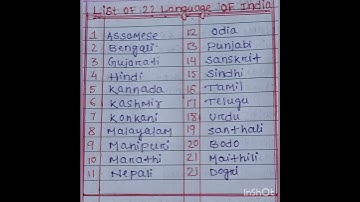 List of 22 Language of India
1 Assamese 12 Odia
2 Bengali 13 Punjabi
3 Gujarati 14 Sanskrit
4 Hindi 15 Sindhi
5 Kannada 16 Tamil
6 Kashmir 17 Telugu
7 Konkani 18 Urdu
8 Malayalam 19 Santhali
9 Manipuri 20 Bodo
10 Marathi 21 Maithili
11 Nepali 21 Dogri
InShOt